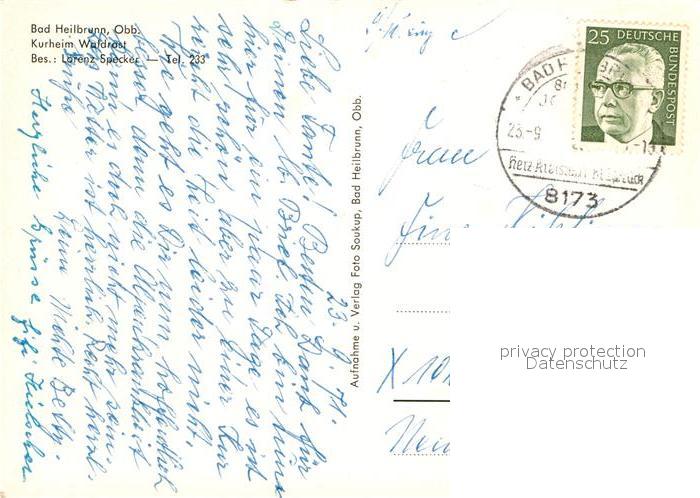 Bad Heilbrunn, Obb.
Kurheim Waldrast
Bes.: Lorenz Specker — Tel. 233
23. 9. 71.
Liebe Tante! Besten Dank für
Deinen lb. Brief. Ich bin nun
hier für ein paar Tage, es ist
sehr schön, aber zu einer Kur
reicht die Zeit leider nicht.
Wie geht es Dir, zum hoffentlich
besser, denn die
kann es doch nicht mehr sein.
Das Wetter ist herrlich. Recht herzl.
Grüße
Deine Nichte Betty.
Herzliche Grüsse
Aufnahme u. Verlag Foto Soukup, Bad Heilbrunn, Obb.
25 DEUTSCHE BUNDESPOST
BAD H
23.-9
8173
Frau
X 10
privacy protection
Datenschutz